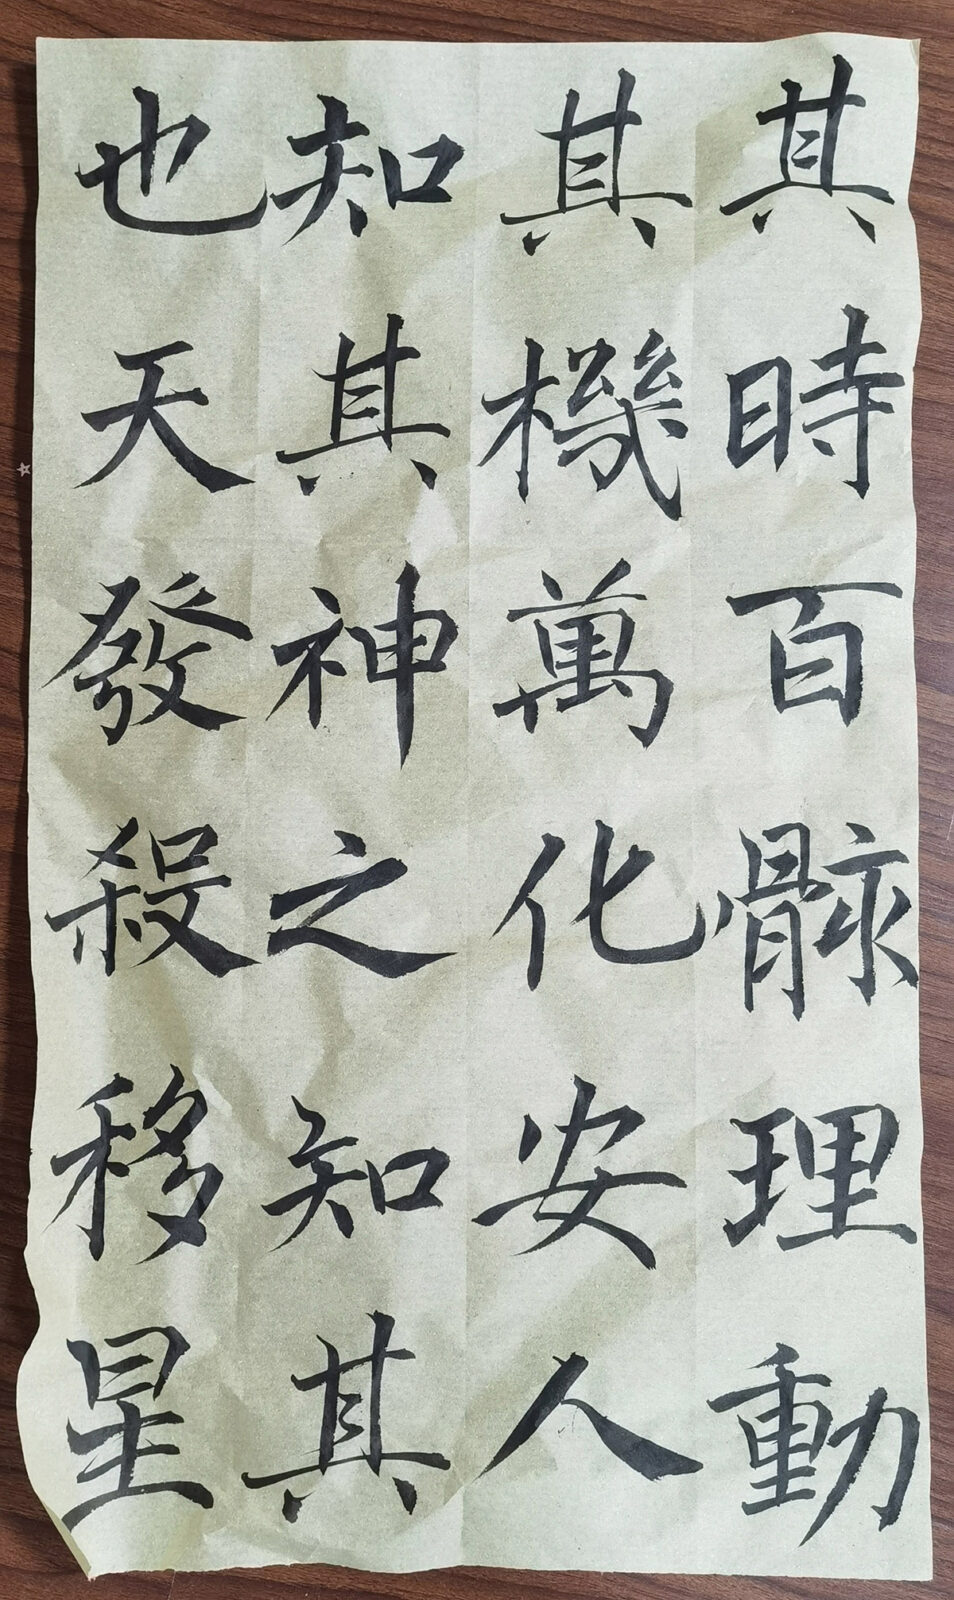 其時百骸理動
其機萬化安人
知其神之知其
也天發殺移星